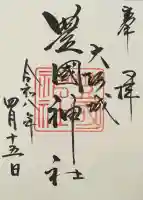 奉拝
大阪城
豊國神社
令和八年
四月十五日